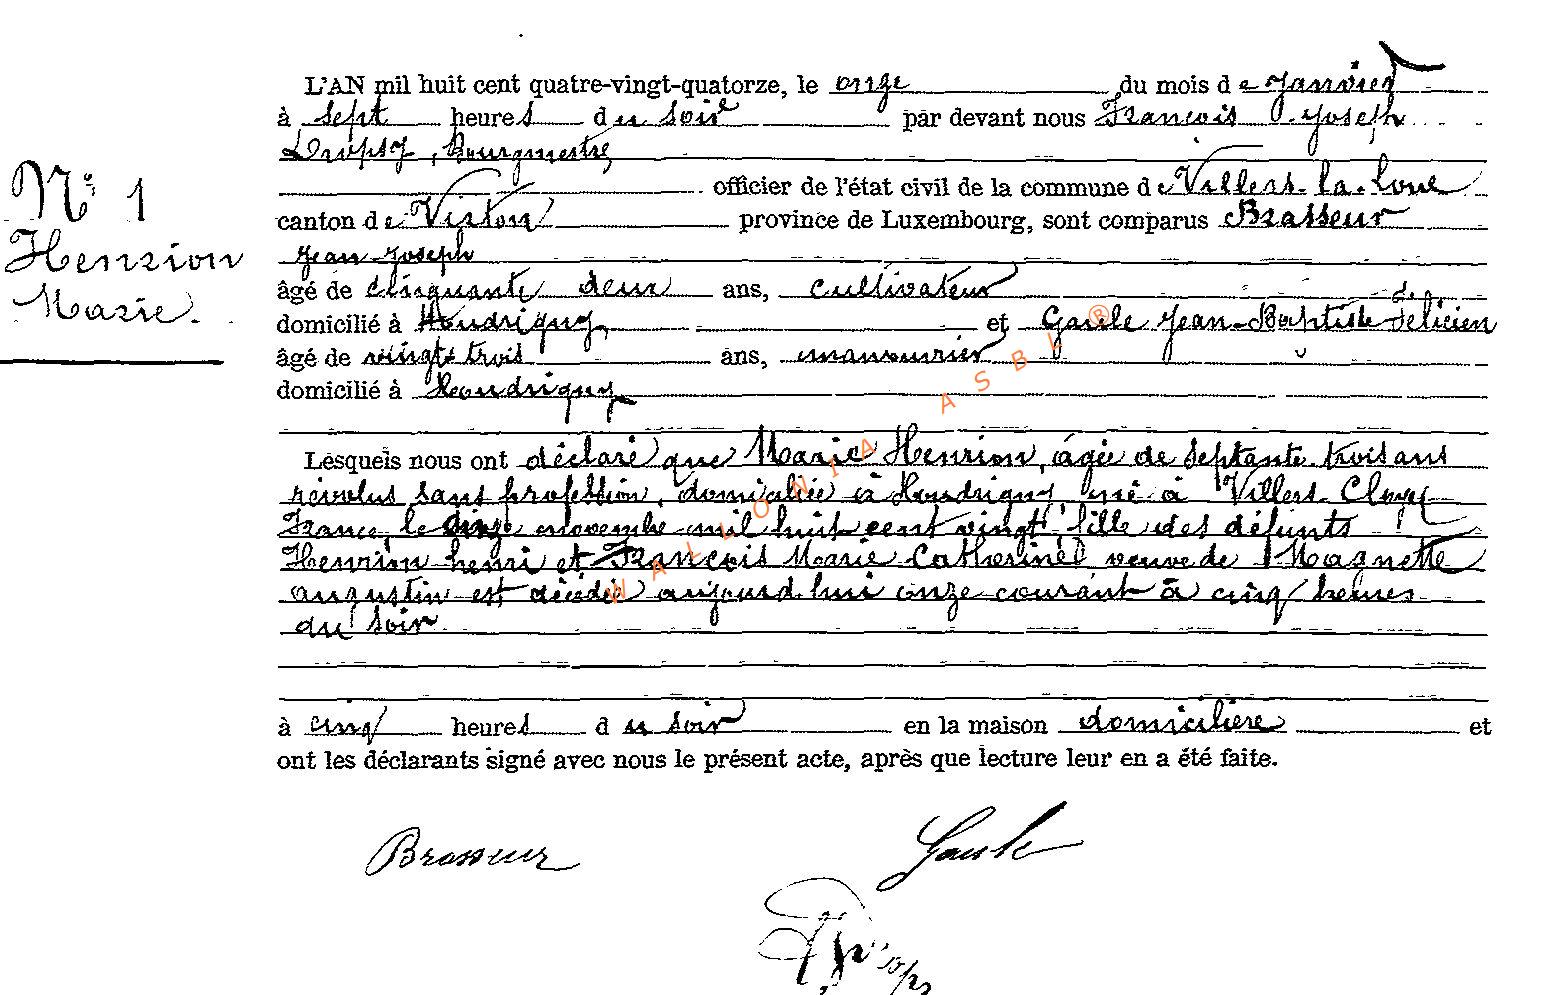 N° 1
Henrion
Marie.
L'AN mil huit cent quatre-vingt-quatorze, le onze du mois de Janvier
à sept heures du soir par devant nous Francois Joseph
Dropsy, Bourgmestre,
officier de l'état civil de la commune de Villers-la-Loue
canton de Virton province de Luxembourg, sont comparus Brasseur
Jean-Joseph
âgé de cinquante deux ans, cultivateur
domicilié à Houdrigny, et Gaule Jean-Baptiste Félicien
âgé de vingt trois ans, manouvrier
domicilié à Houdrigny
Lesquels nous ont déclaré que Marie Henrion, âgée de septante trois ans
révolus sans profession, domiciliée à Houdrigny né à Villers-Cloyes
France, le onze novembre mil huit cent vingt, fille des défunts
Henrion henri et François Marie Catherine veuve de Magnette
augustin est décédée aujourd'hui onze courant à cinq heures
du soir
à cinq heures du soir en la maison domicilière et
ont les déclarants signé avec nous le présent acte, après que lecture leur en a été faite.
Brasseur Gaule
Dropsy
WALLONIA ASBL ®